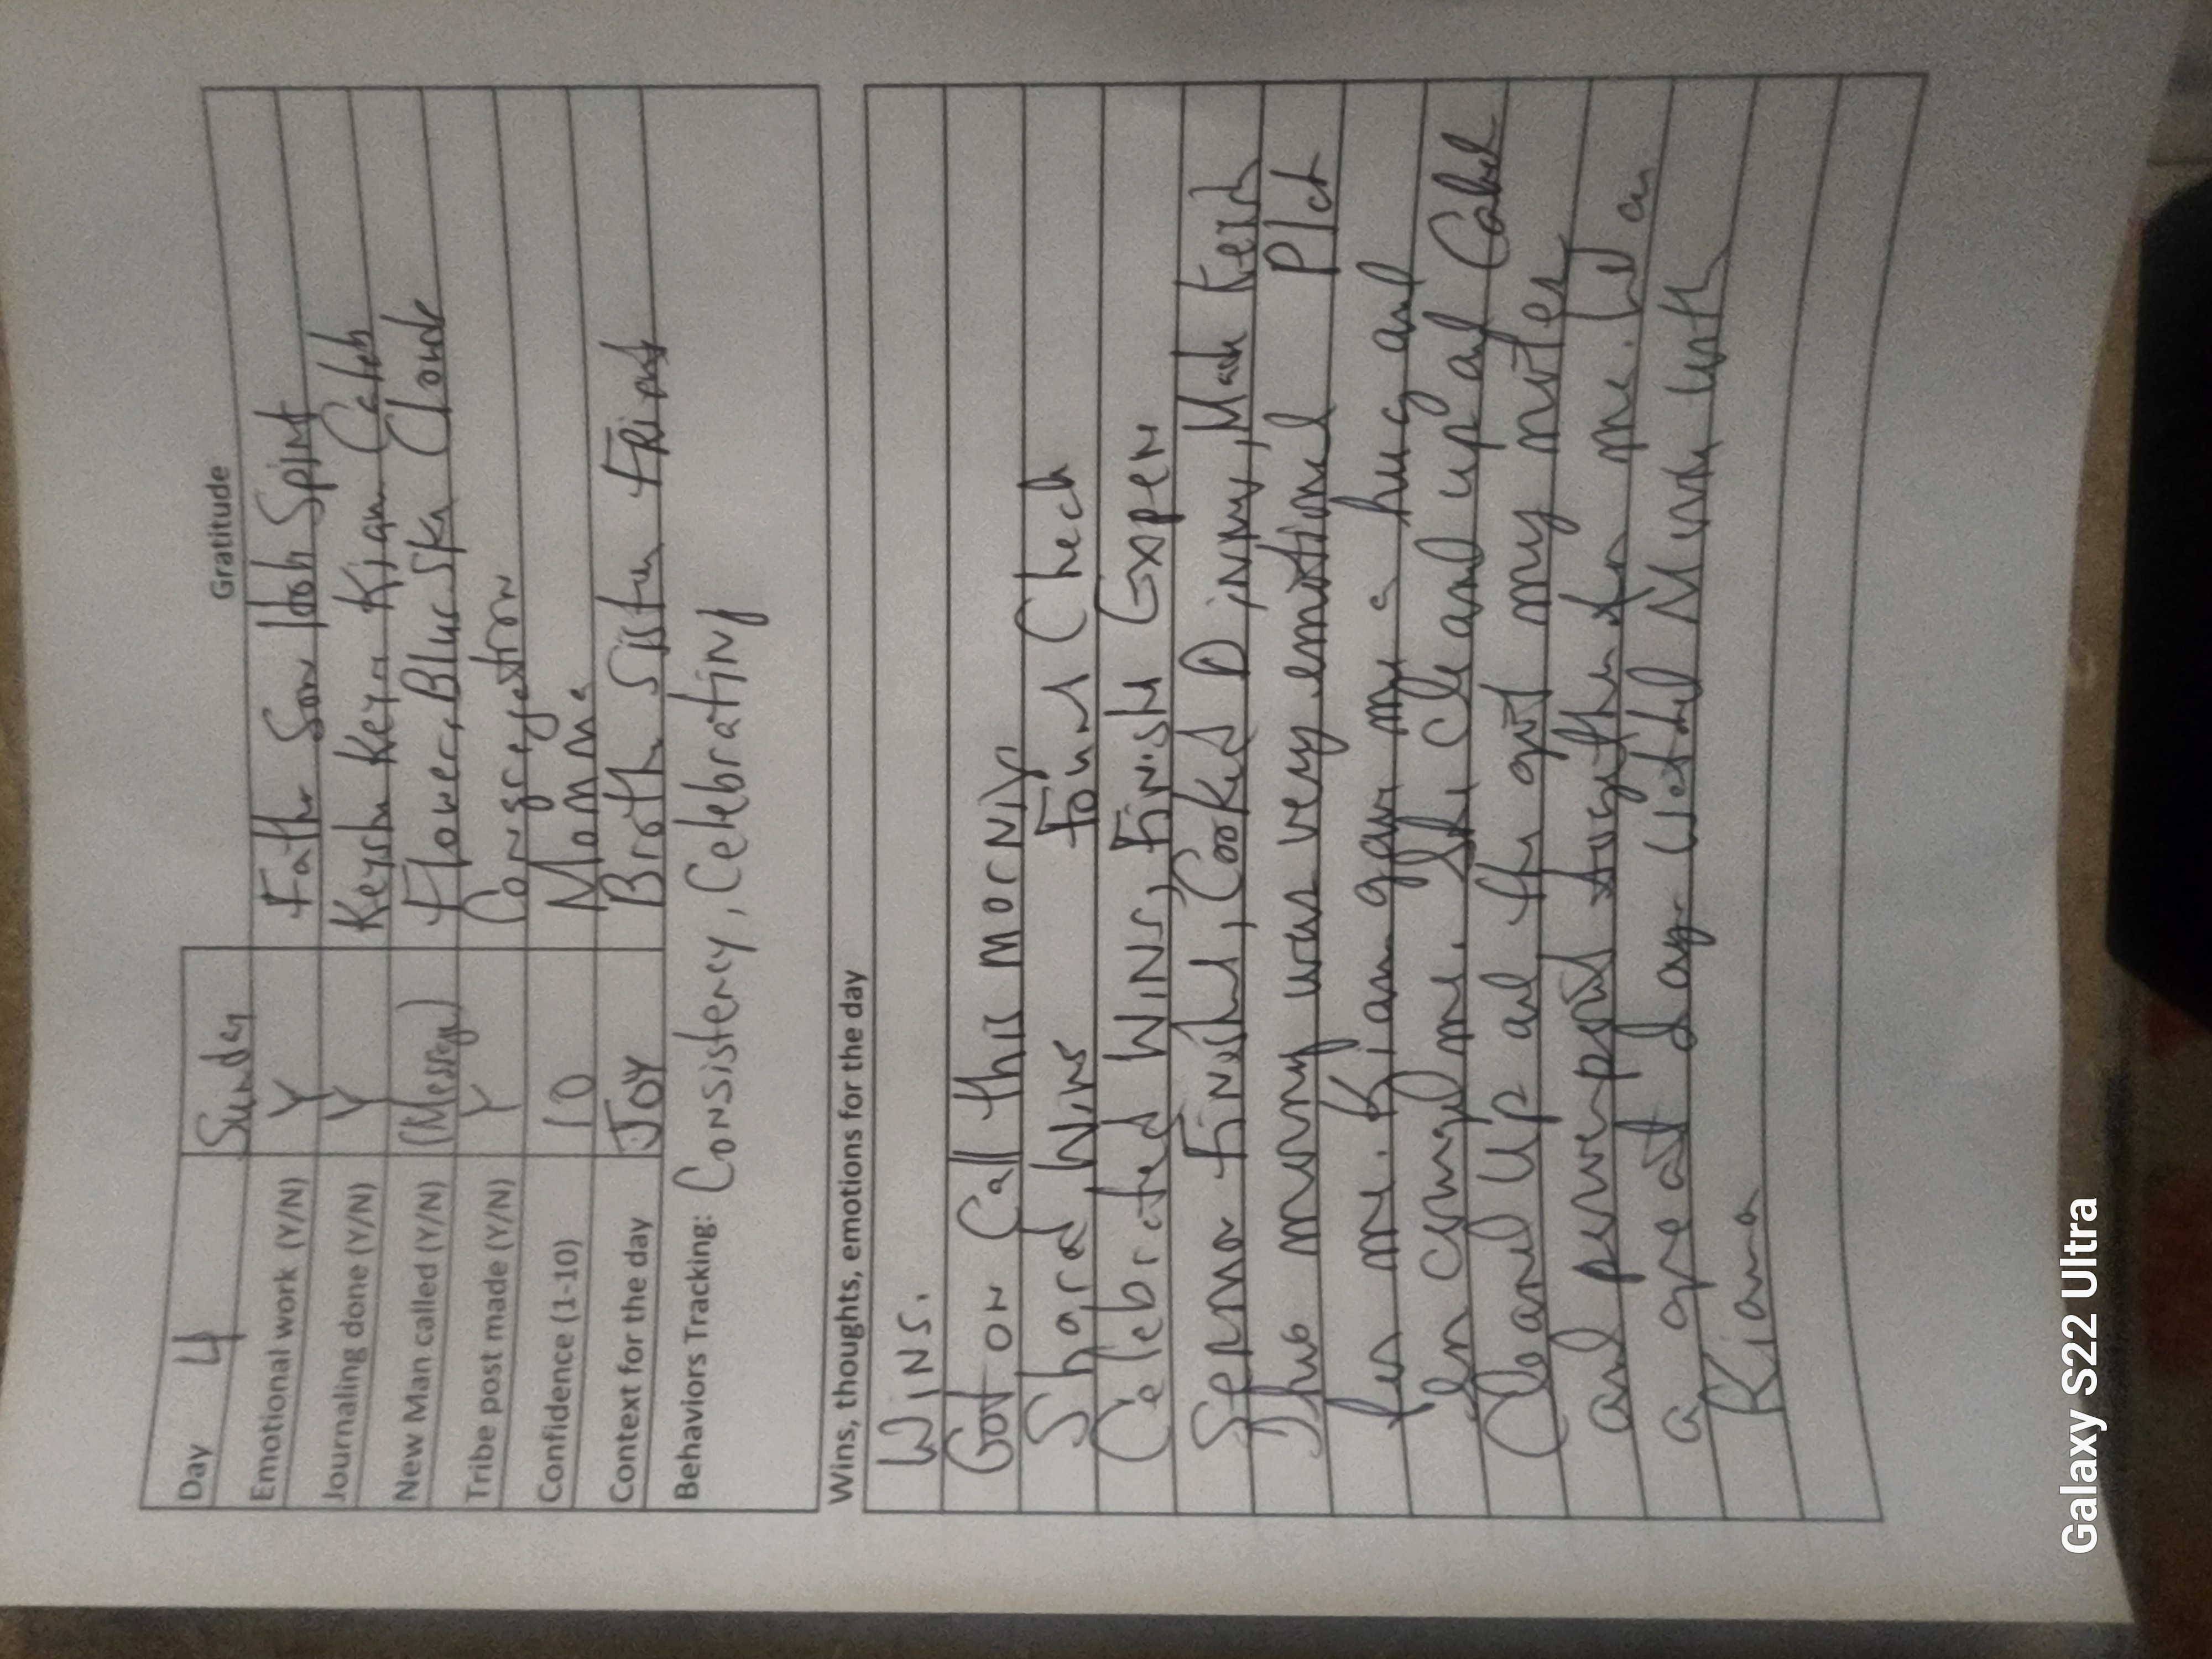 Day 4 Sunday
Gratitude
Emotional work (Y/N) Y Father Son Holy Spirit
Journaling done (Y/N) Y Keysha Keyra Kiana Caleb
New Man called (Y/N) (Message) Flowers, Blue Sky Clouds
Tribe post made (Y/N) Y Congregation
Confidence (1-10) 10 Momma
Context for the day JOY Broth Sister Friends
Behaviors Tracking: Consistency, Celebrating
Wins, thoughts, emotions for the day
WINS.
Got on Call this morning
Shared Wins Found Check
Celebrated Wins, Finish Expen
Sermon Finished, Cooked Dinner, Made
This morning was very emotional
for me. Kiana gave me a hug and
cleaned up and Caleb
Cleaned Up and got my notes
and together for me. Had a
a great day. Watched with
Kiana
Galaxy S22 Ultra